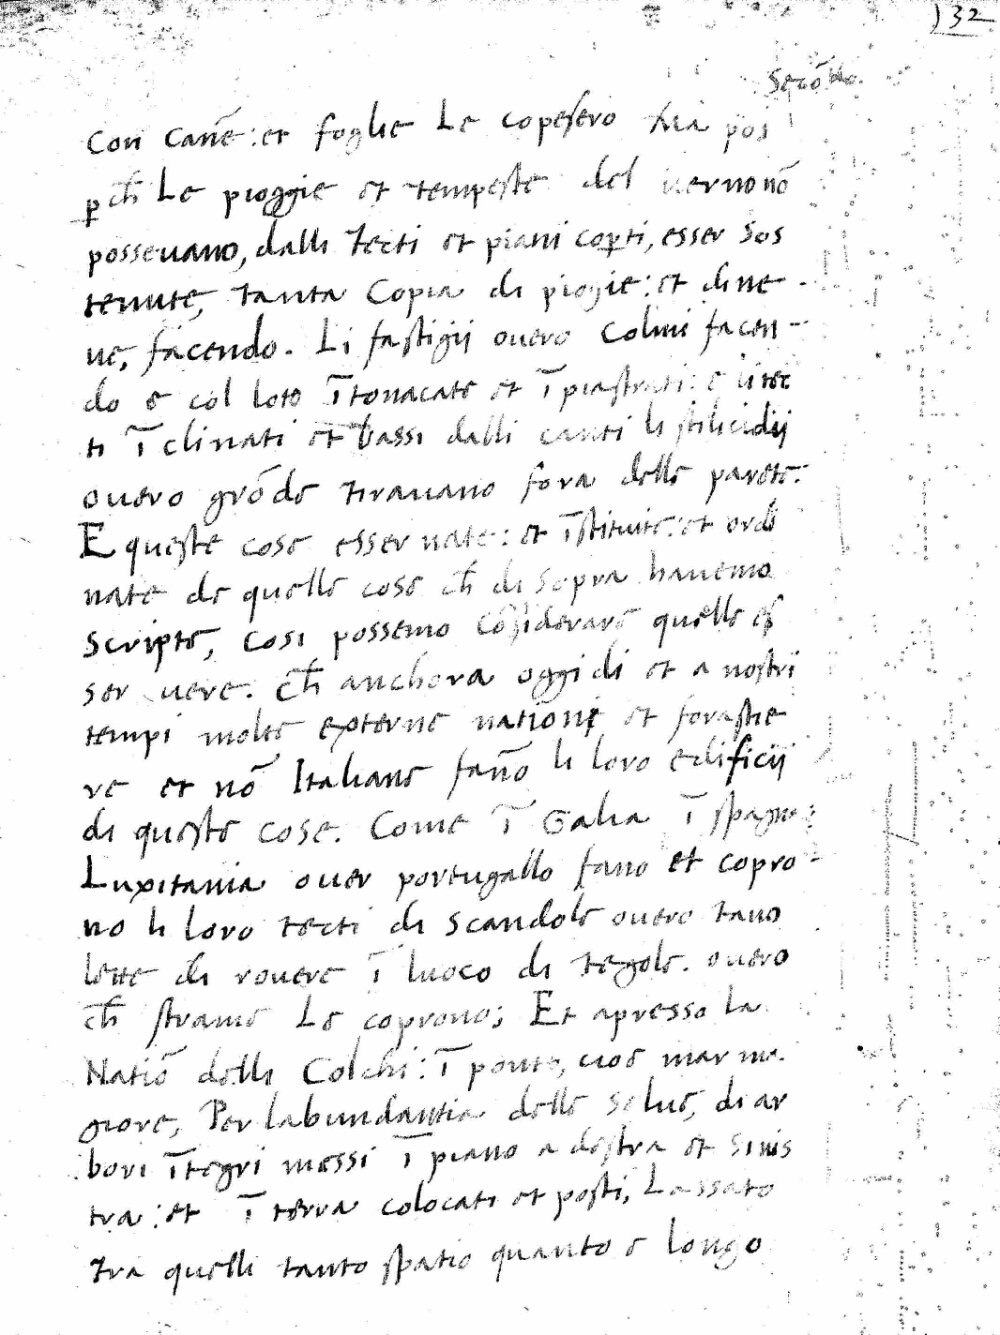 132
Secōdo.
Con Canē: et foglie Le coperſero Ma poi
ꝑ ch̄ Le pioggie et tempeste del uerno nō
posseuano, dalli Tecti et piani coꝑti, esser Sos
tenute, tanta Copia di piogie: et di ne-
ue, facendo. Li faſtigii ouero Colmi facen-
do e col loto ītonacato et īpiaſtrati: e li tec
ti īclinati et bassi dalli canti li ſtilicidii
ouero grōde tirauano fora delle parete:
E queſte cose esser nate: et īſtituite: et ordi
nate de quelle cose ch̄ di Sopra hauemo
Scripto, Cosi possemo cōſiderare quelle eſ
ser uere. Ch̄ anchora oggi di et a noſtri
tempi molte externe natione et foraſtie
re et nō Italiane fāno li loro edificii
di queſte cose. Come ī Galia ī ſpagna:
Luxitania ouer portugallo fano et copro-
no li loro tecti di Scandole ouero tauo
lette di rouere ī luoco di tegole. ouero
ch̄ ſtrame Le coprono; Et apresso la
Natiō delli Colchi: ī ponto, cioe mar ma
giore, Per labundantia delle Selue, di ar
bori ītegri messi ī piano a deſtra et Sinis
tra: et ī terra colocati et poſti, Lassato
tra quelli tanto ſpatio quanto e longo